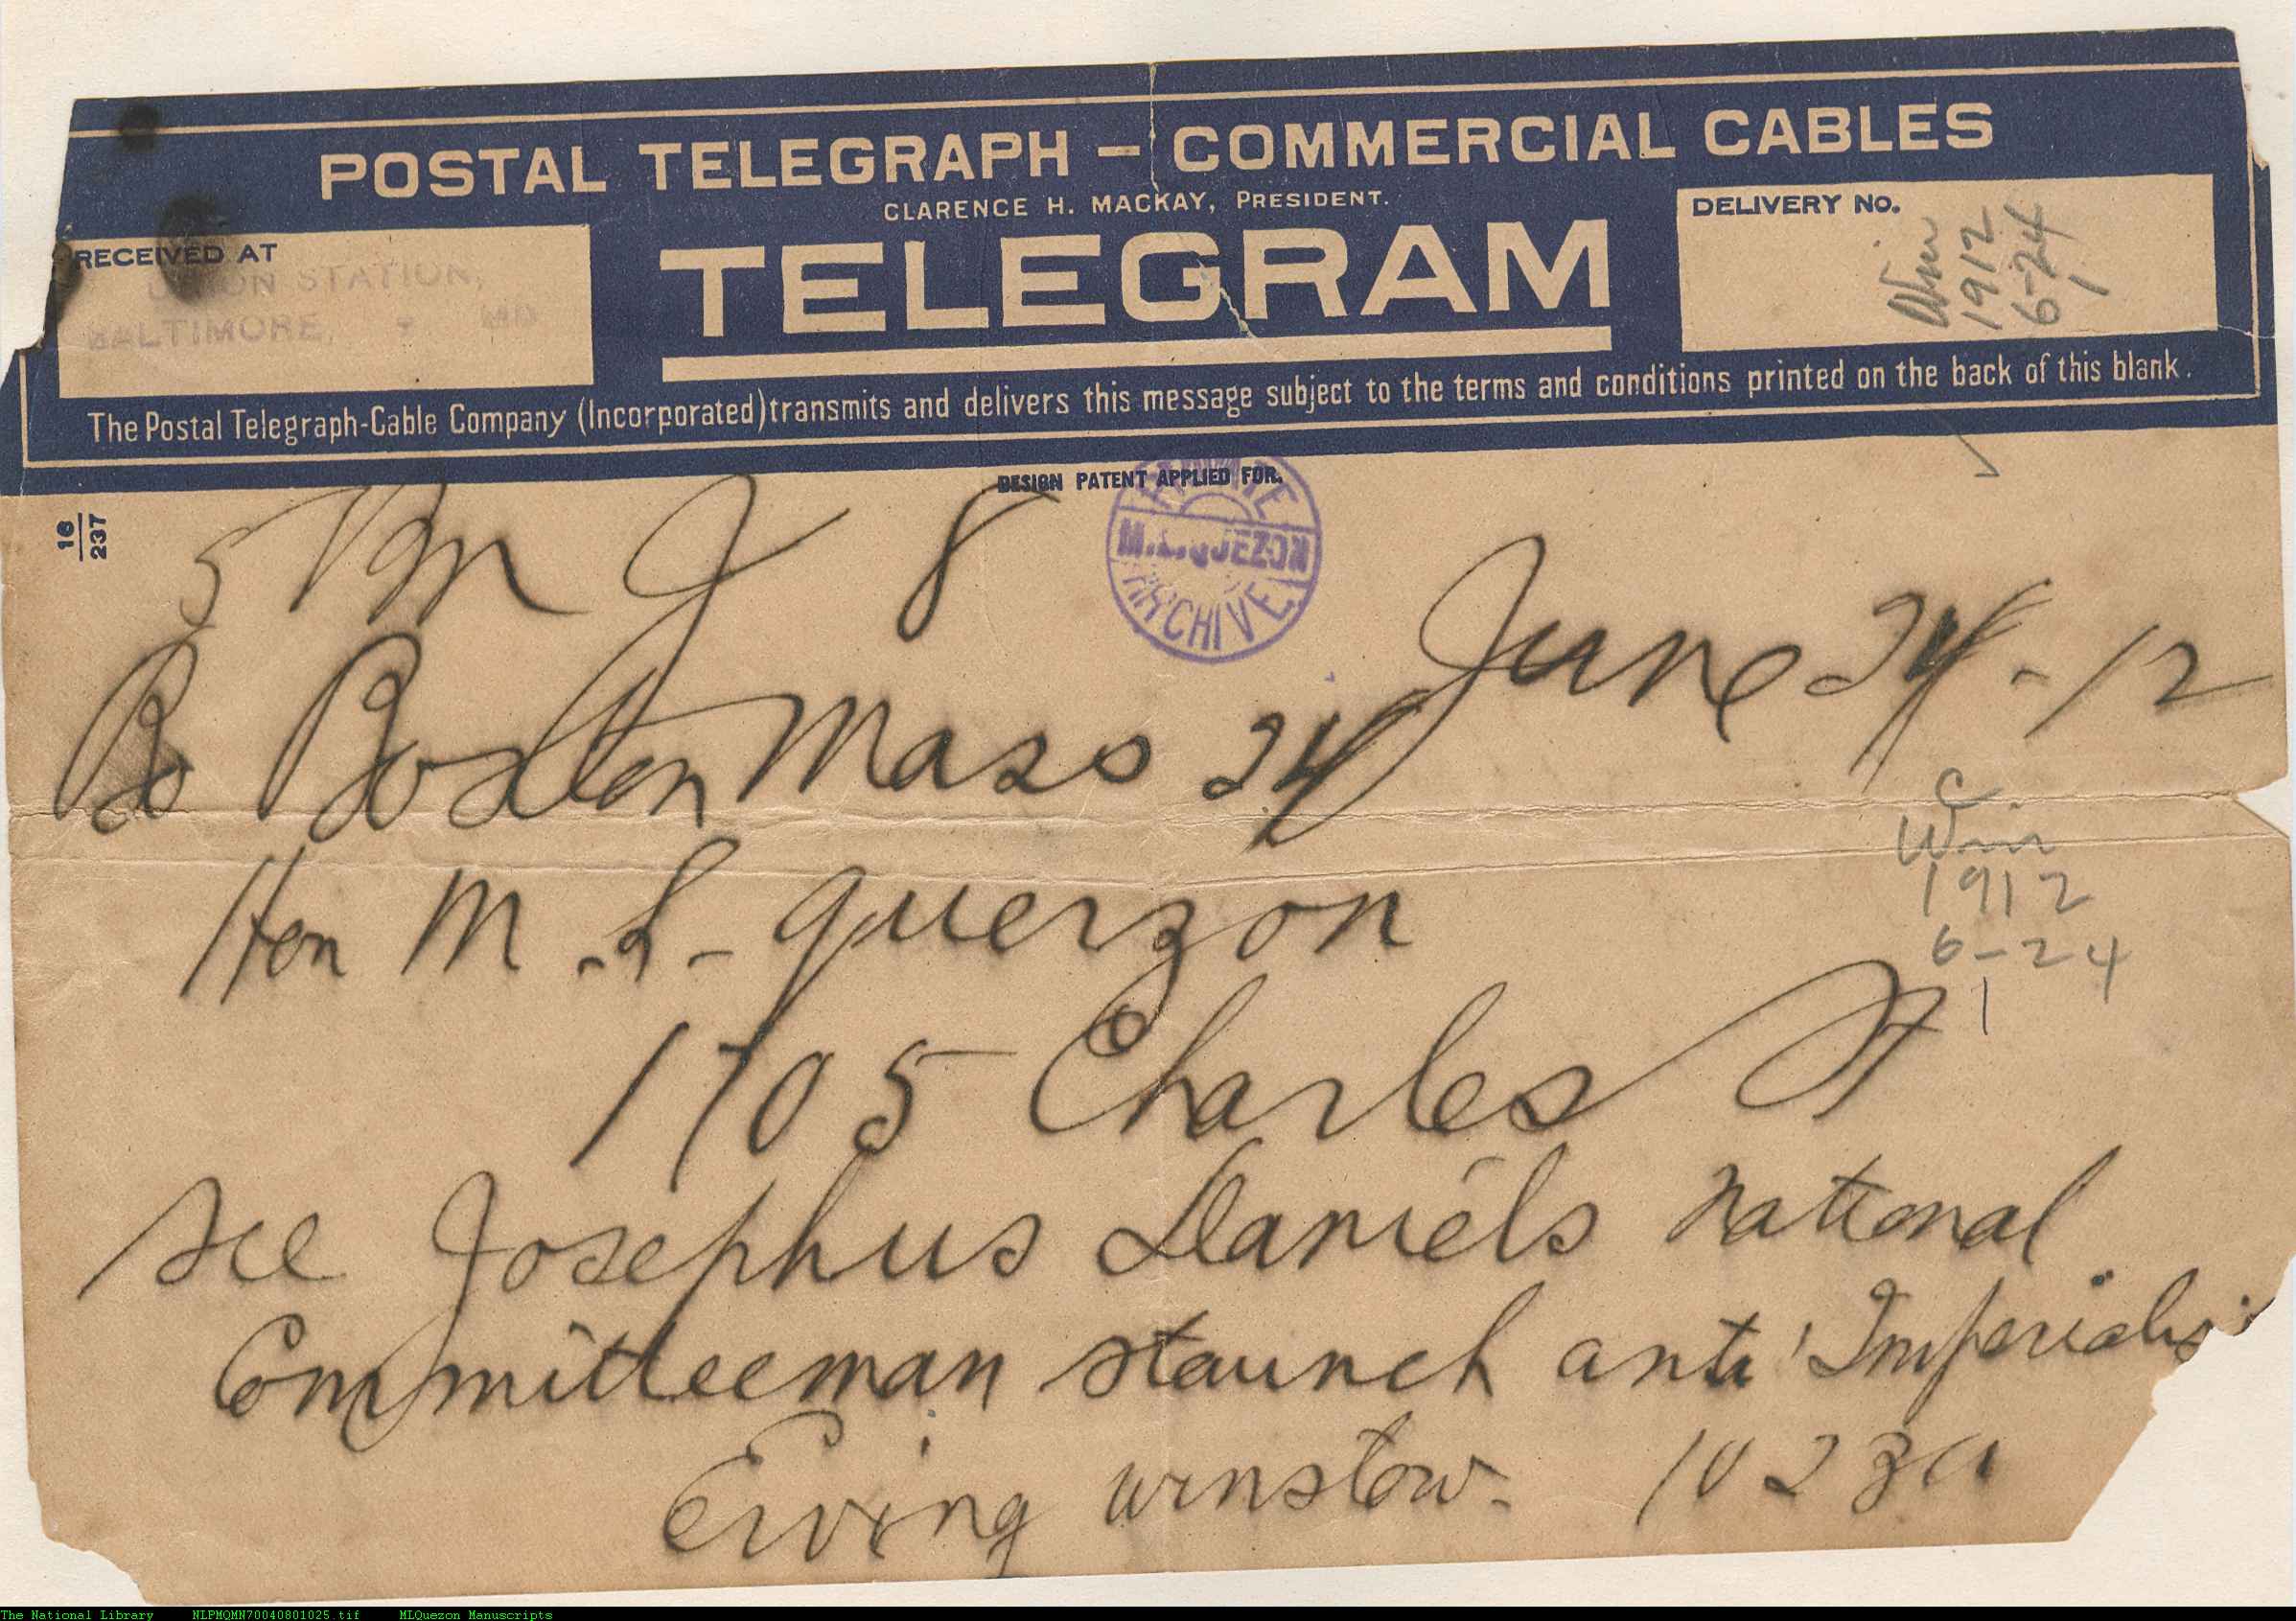 POSTAL TELEGRAPH – COMMERCIAL CABLES
CLARENCE H. MACKAY, PRESIDENT.
RECEIVED AT
UNION STATION,
BALTIMORE, MD
TELEGRAM
DELIVERY No.
Win
1912
6-24
1
The Postal Telegraph-Cable Company (Incorporated) transmits and delivers this message subject to the terms and conditions printed on the back of this blank.
DESIGN PATENT APPLIED FOR.
16
237
M.L.QUEZON
ARCHIVE
5 J 8
June 24-12
Bo Boston Mass 24
C
Win
1912
6-24
1
Hon M.L- Querzon
1705 Charles St
See Josephus Daniels national
Committeeman staunch anti Imperialis
Erving Winslow. 1023a
The National Library NLPMQMN70040801025.tif MLQuezon Manuscripts